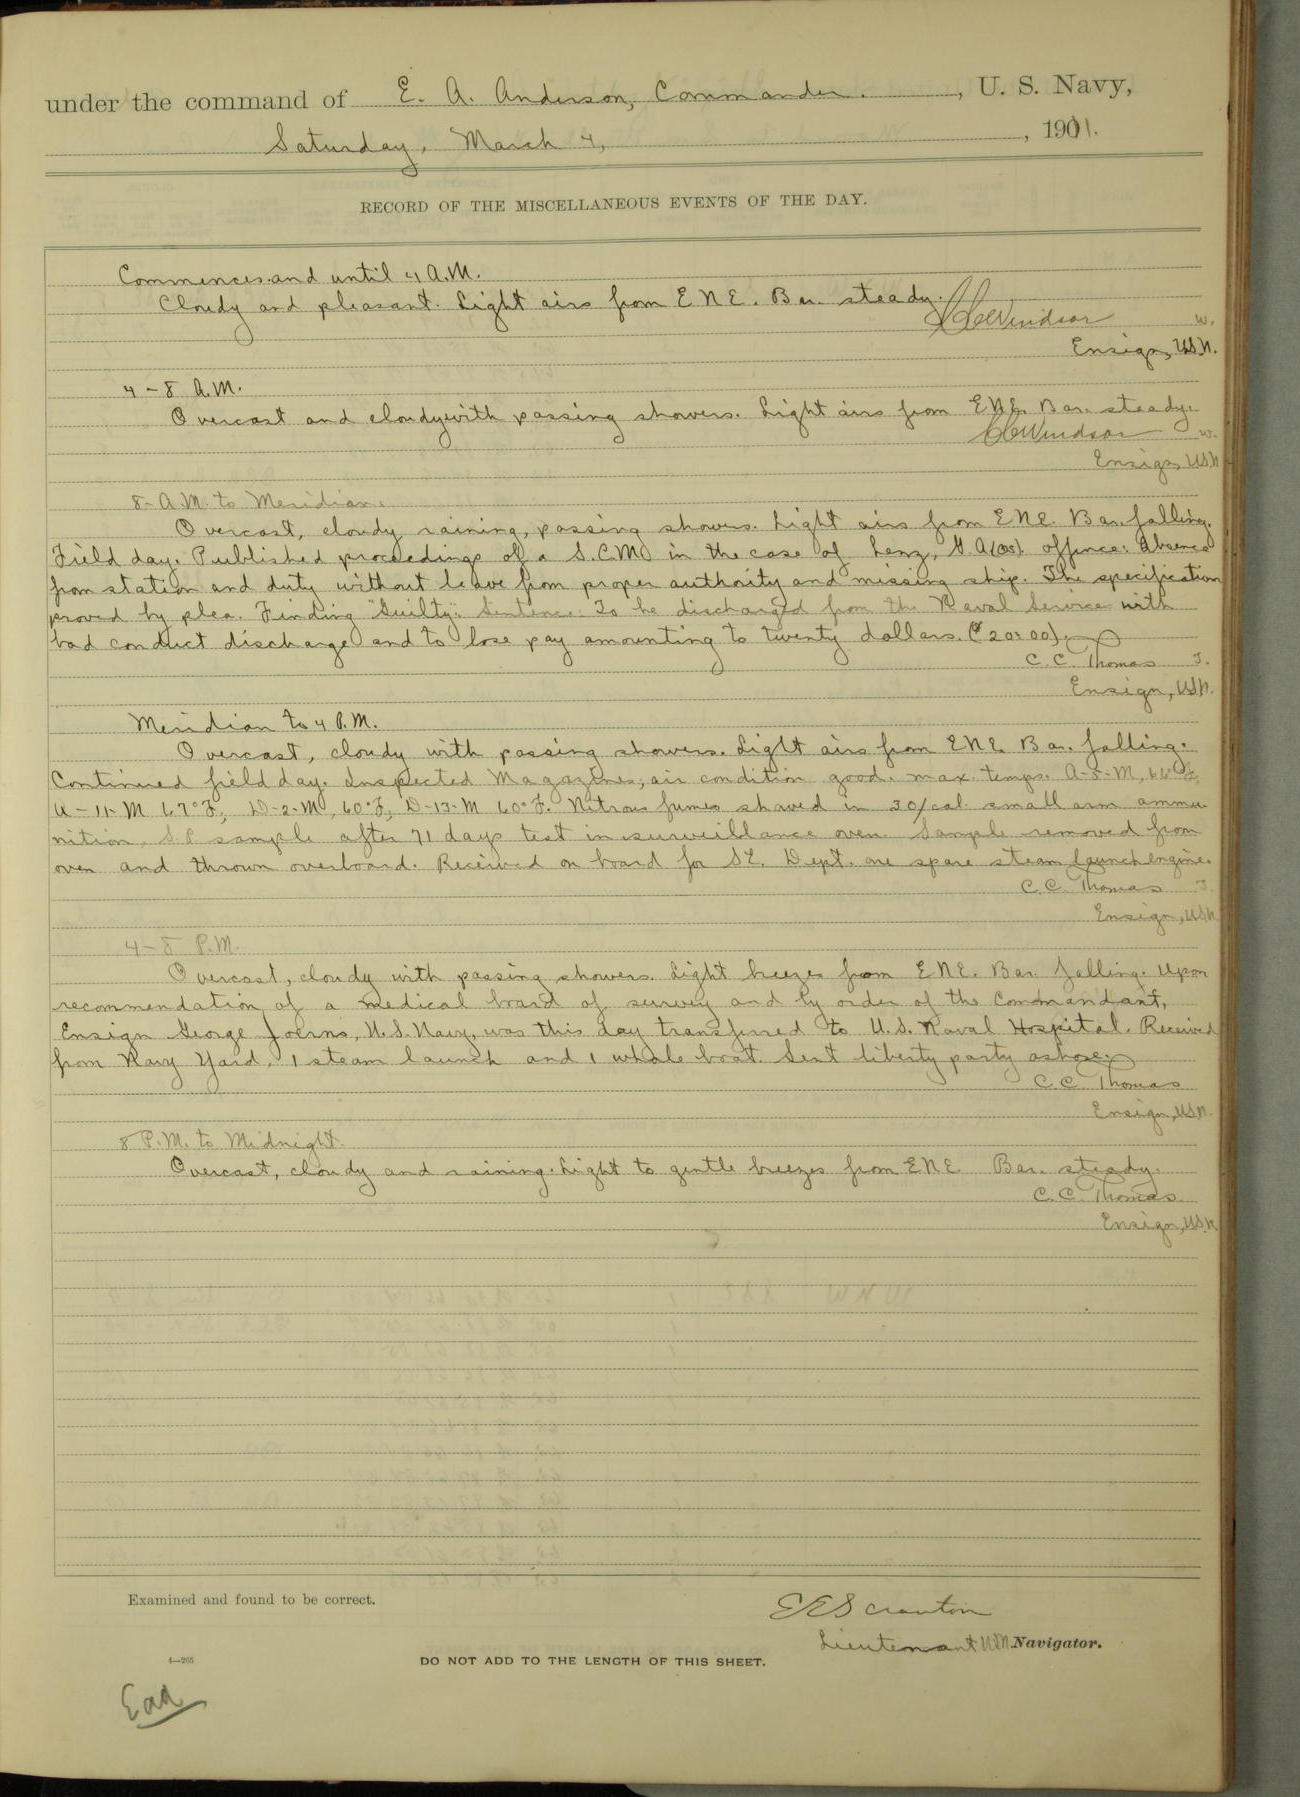 under the command of E. A. Anderson, Commander. , U. S. Navy,
Saturday, March 4, , 1911.
RECORD OF THE MISCELLANEOUS EVENTS OF THE DAY.
Commences and until 4 A.M.
Cloudy and pleasant. Light airs from ENE. Bar. steady.
Windsor w.
Ensign, U.S.N.
4-8 A.M.
Overcast and cloudy with passing showers. Light airs from ENE. Bar. steady.
Windsor w.
Ensign, U.S.N
8-A.M. to Meridian.
Overcast, cloudy raining, passing showers. Light airs from ENE. Bar. falling.
Field day. Published proceedings of a S.C.M. in the case of Lenz, G. A. (OS). offence: Absence
from station and duty without leave from proper authority and missing ship. The specification
proved by plea. Finding "Guilty". Sentence: To be discharged from the Naval Service with
bad conduct discharge and to lose pay amounting to twenty dollars. ($20.00).
C. C. Thomas T.
Ensign, U.S.N.
Meridian to 4 P.M.
Overcast, cloudy with passing showers. Light airs from ENE. Bar. falling.
Continued field day. Inspected Magazines, air condition good. max. temps. A-5-M, 66°F,
A-11-M 67°F, D-2-M, 60°F, D-13-M 60°F. Nitrous fumes showed in 30/cal small arm ammu
nition, S.P. sample after 71 days test in surveillance oven. Sample removed from
oven and thrown overboard. Received on board for S.E. Dept. one spare steam launch engine.
C. C. Thomas T.
Ensign, U.S.N
4-8 P.M.
Overcast, cloudy with passing showers. Light breezes from ENE. Bar. falling. Upon
recommendation of a medical board of survey and by order of the Commandant,
Ensign George Joerns, U.S. Navy, was this day transferred to U.S. Naval Hospital. Received
from Navy Yard, 1 steam launch and 1 whale boat. Sent liberty party ashore.
C. C. Thomas
Ensign, U.S.N.
8 P.M. to Midnight.
Overcast, cloudy and raining. Light to gentle breezes from ENE. Bar. steady.
C. C. Thomas
Ensign, U.S.N.
Examined and found to be correct.
Scranton
Lieutenant U.S.N. Navigator.
4—265
DO NOT ADD TO THE LENGTH OF THIS SHEET.